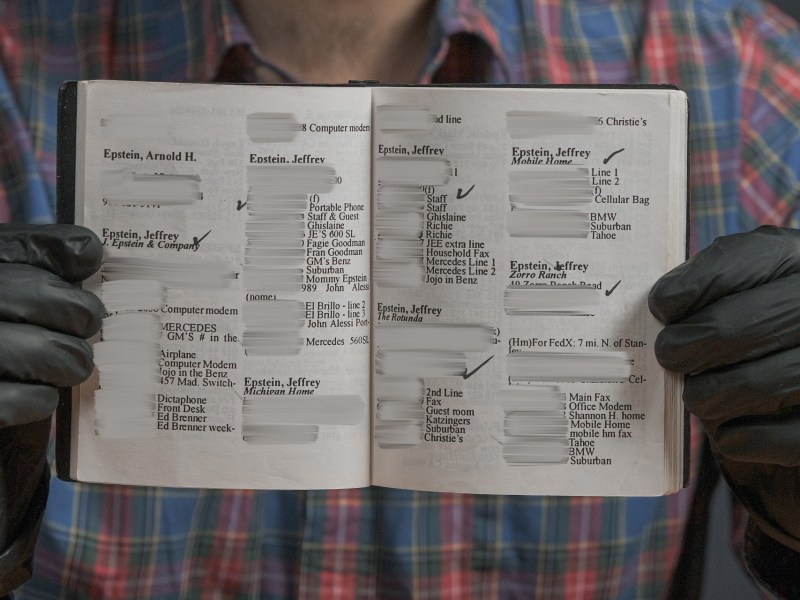 8 Computer modem
Epstein, Arnold H.
Epstein, Jeffrey
J. Epstein & Company
Computer modem
MERCEDES
GM'S # in the
Airplane
Computer Modem
Jojo in the Benz
457 Mad. Switch-
Dictaphone
Front Desk
Ed Brenner
Ed Brenner week-
Epstein, Jeffrey
0
(f)
Portable Phone
Staff & Guest
Ghislaine
JE'S 600 SL
Fagie Goodman
Fran Goodman
GM's Benz
Suburban
Mommy Epstein
989 John Aless
(home)
El Brillo - line 2
El Brillo - line 3
John Alessi Port-
Mercedes 560SL
Epstein, Jeffrey
Michigan Home
line
Epstein, Jeffrey
(f)
Staff
Staff
Ghislaine
Richie
Richie
JEE extra line
Household Fax
Mercedes Line 1
Mercedes Line 2
Jojo in Benz
Epstein, Jeffrey
The Rotunda
2nd Line
Fax
Guest room
Katzingers
Suburban
Christie's
6 Christie's
Epstein, Jeffrey
Mobile Home
Line 1
Line 2
(f)
Cellular Bag
BMW
Suburban
Tahoe
Epstein, Jeffrey
Zorro Ranch
49 Zorro Ranch Road
(Hm)For FedX: 7 mi. N. of Stan-
Cel-
Main Fax
Office Modem
Shannon H. home
Mobile Home
mobile hm fax
Tahoe
BMW
Suburban